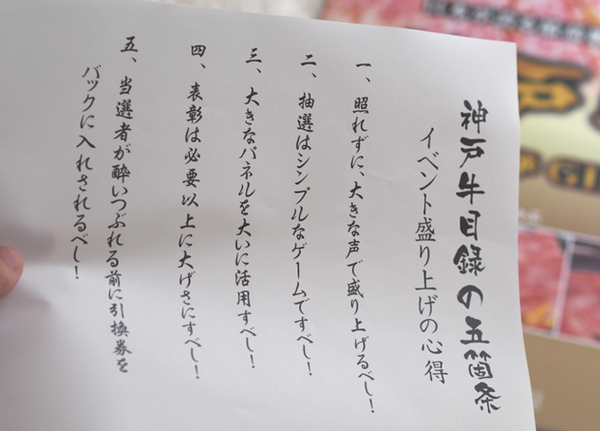 神戸牛目録の五箇条
イベント盛り上げの心得
一、照れずに、大きな声で盛り上げるべし！
二、抽選はシンプルなゲームですべし！
三、大きなパネルを大いに活用すべし！
四、表彰は必要以上に大げさにすべし！
五、当選者が酔いつぶれる前に引換券を
バックに入れされるべし！